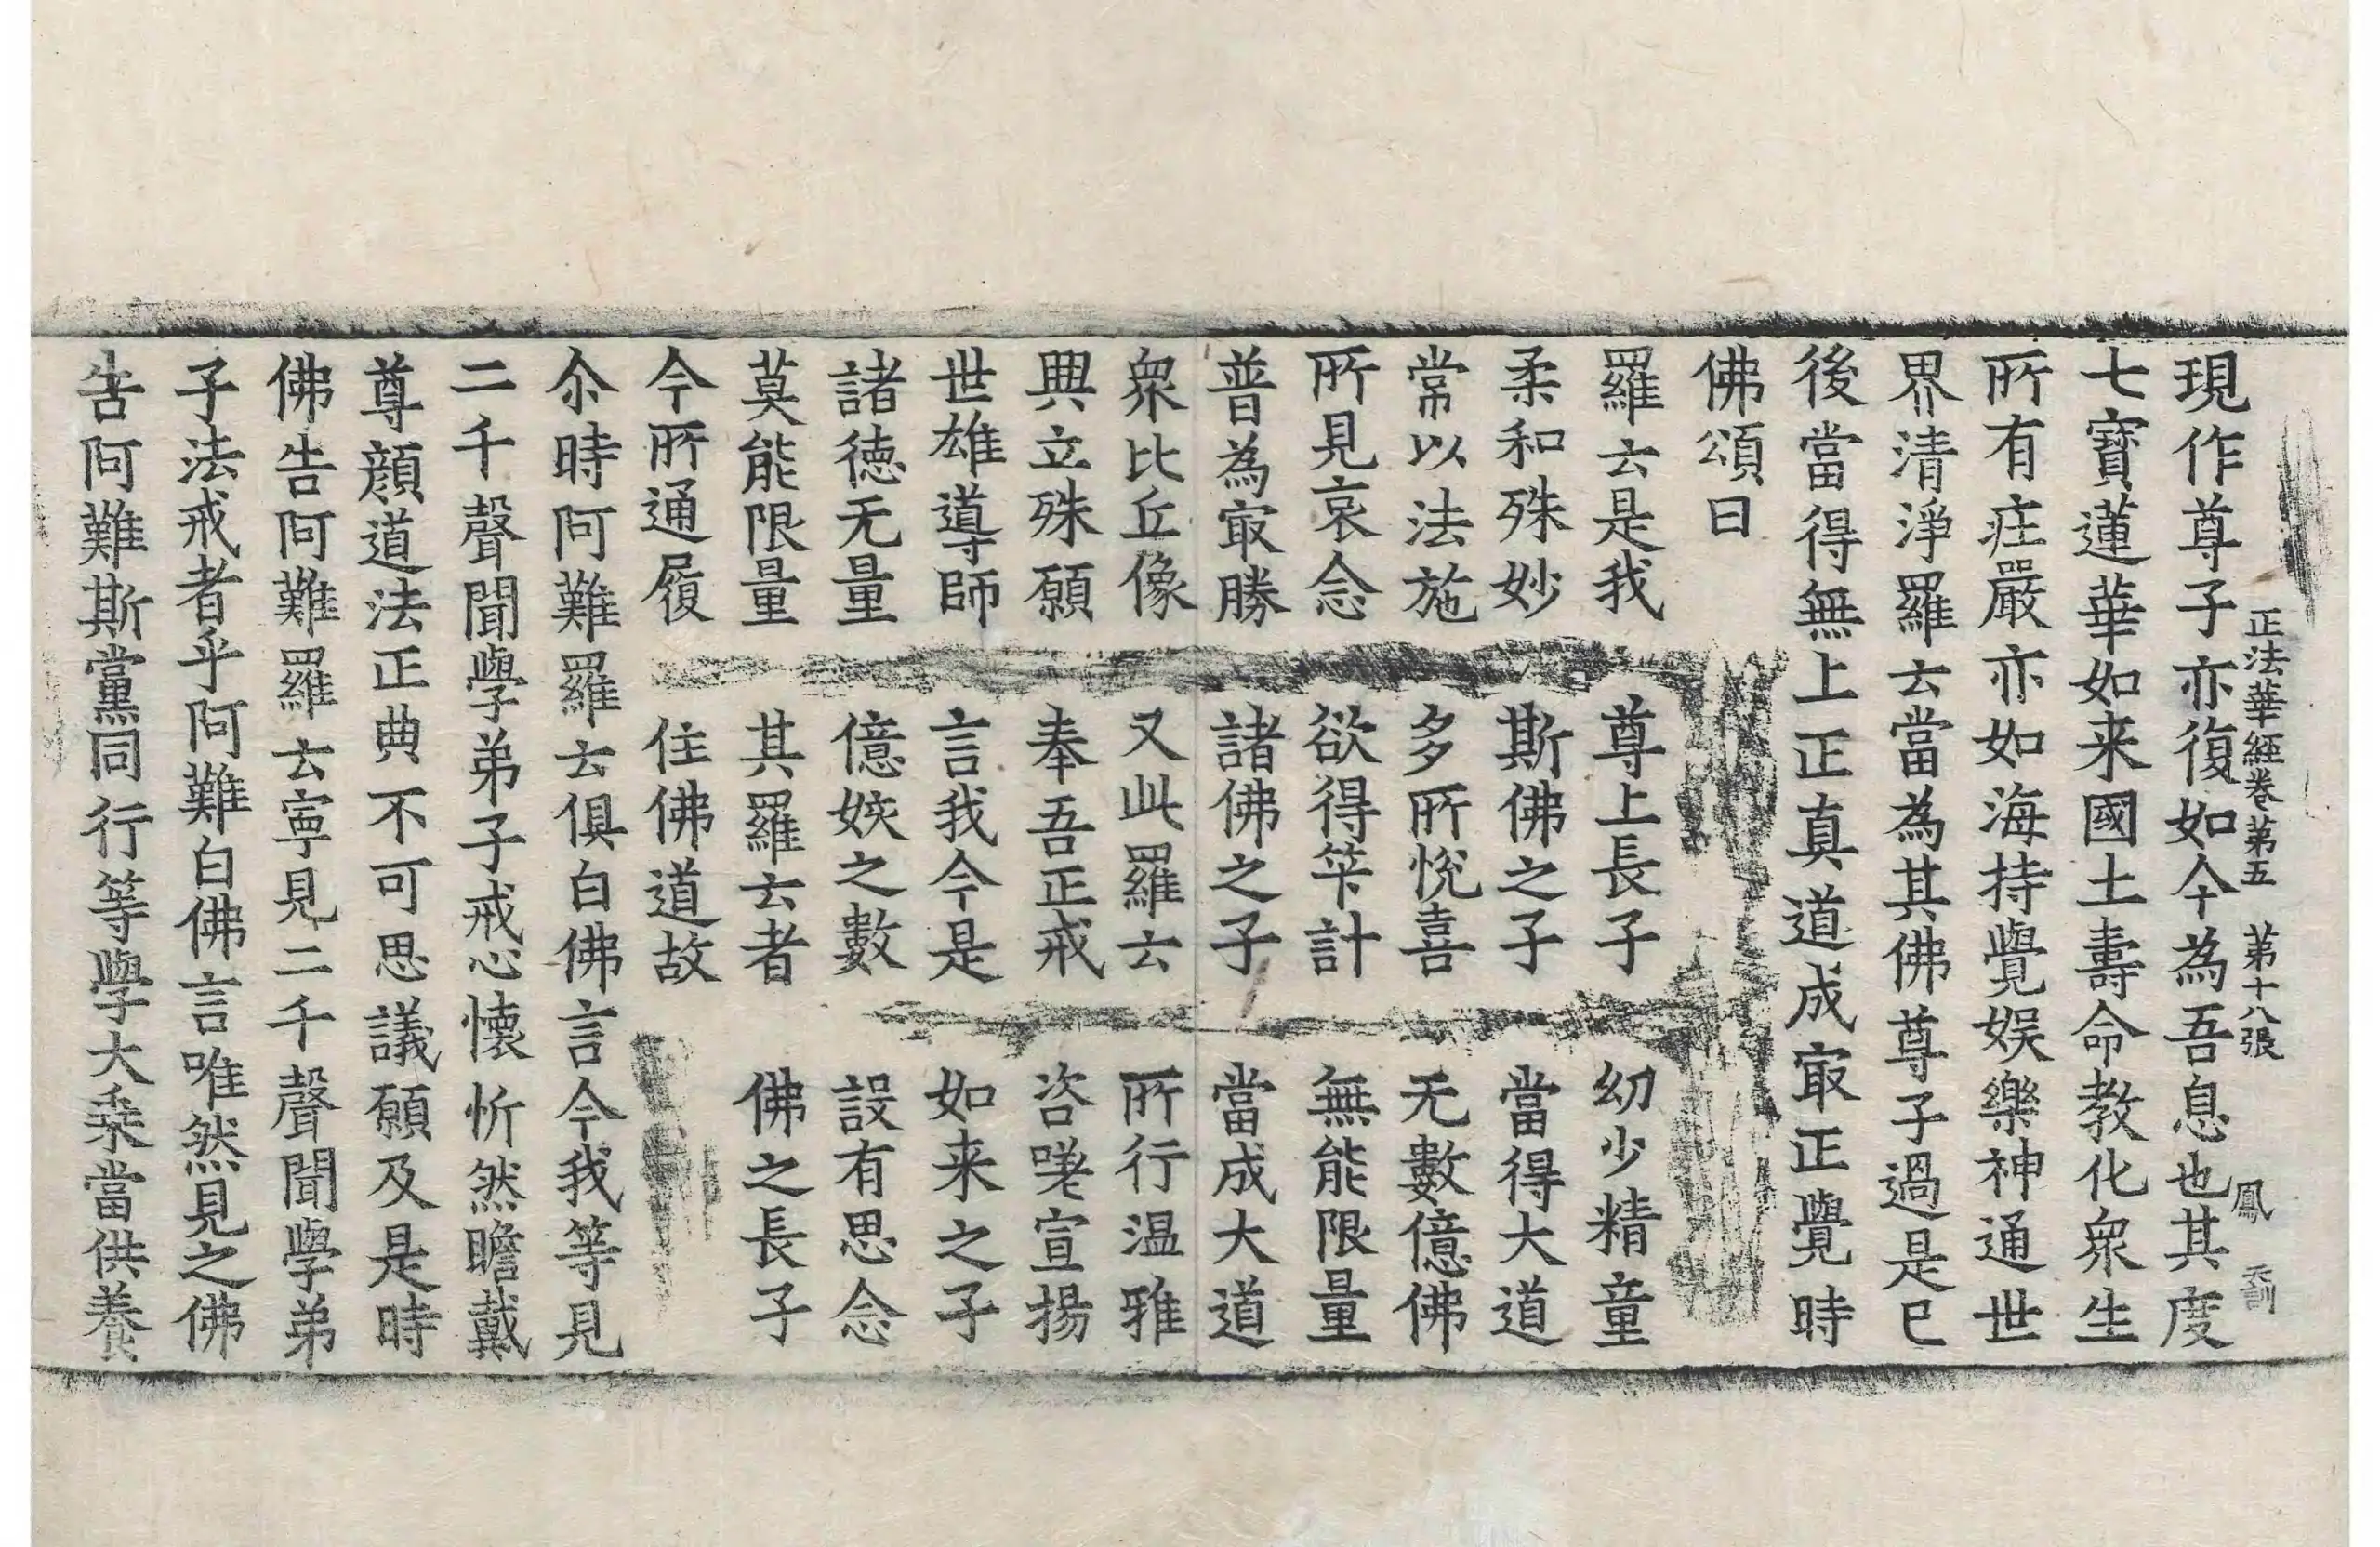 正法華經卷第五　第十八張　鳳
現作尊子亦復如今為吾息也其度
七寶蓮華如来國土壽命教化衆生
所有庄嚴亦如海持覺娱樂神通世
界清淨羅云當為其佛尊子過是已
後當得無上正真道成冣正覺時
佛頌曰
羅云是我　尊上長子　幼少精童
柔和殊妙　斯佛之子　當得大道
常以法施　多所悅喜　无數億佛
所見哀念　欲得筭計　無能限量
普為冣勝　諸佛之子　當成大道
衆比丘像　又此羅云　所行温雅
興立殊願　奉吾正戒　咨嗟宣揚
世雄導師　言我今是　如来之子
諸德无量　億姟之數　設有思念
莫能限量　其羅云者　佛之長子
今所通履　住佛道故
尒時阿難羅云俱白佛言今我等見
二千聲聞學弟子戒心懷忻然瞻戴
尊顔道法正典不可思議願及是時
佛告阿難羅云寧見二千聲聞學弟
子法戒者乎阿難白佛言唯然見之佛
告阿難斯黨同行等學大乘當供養